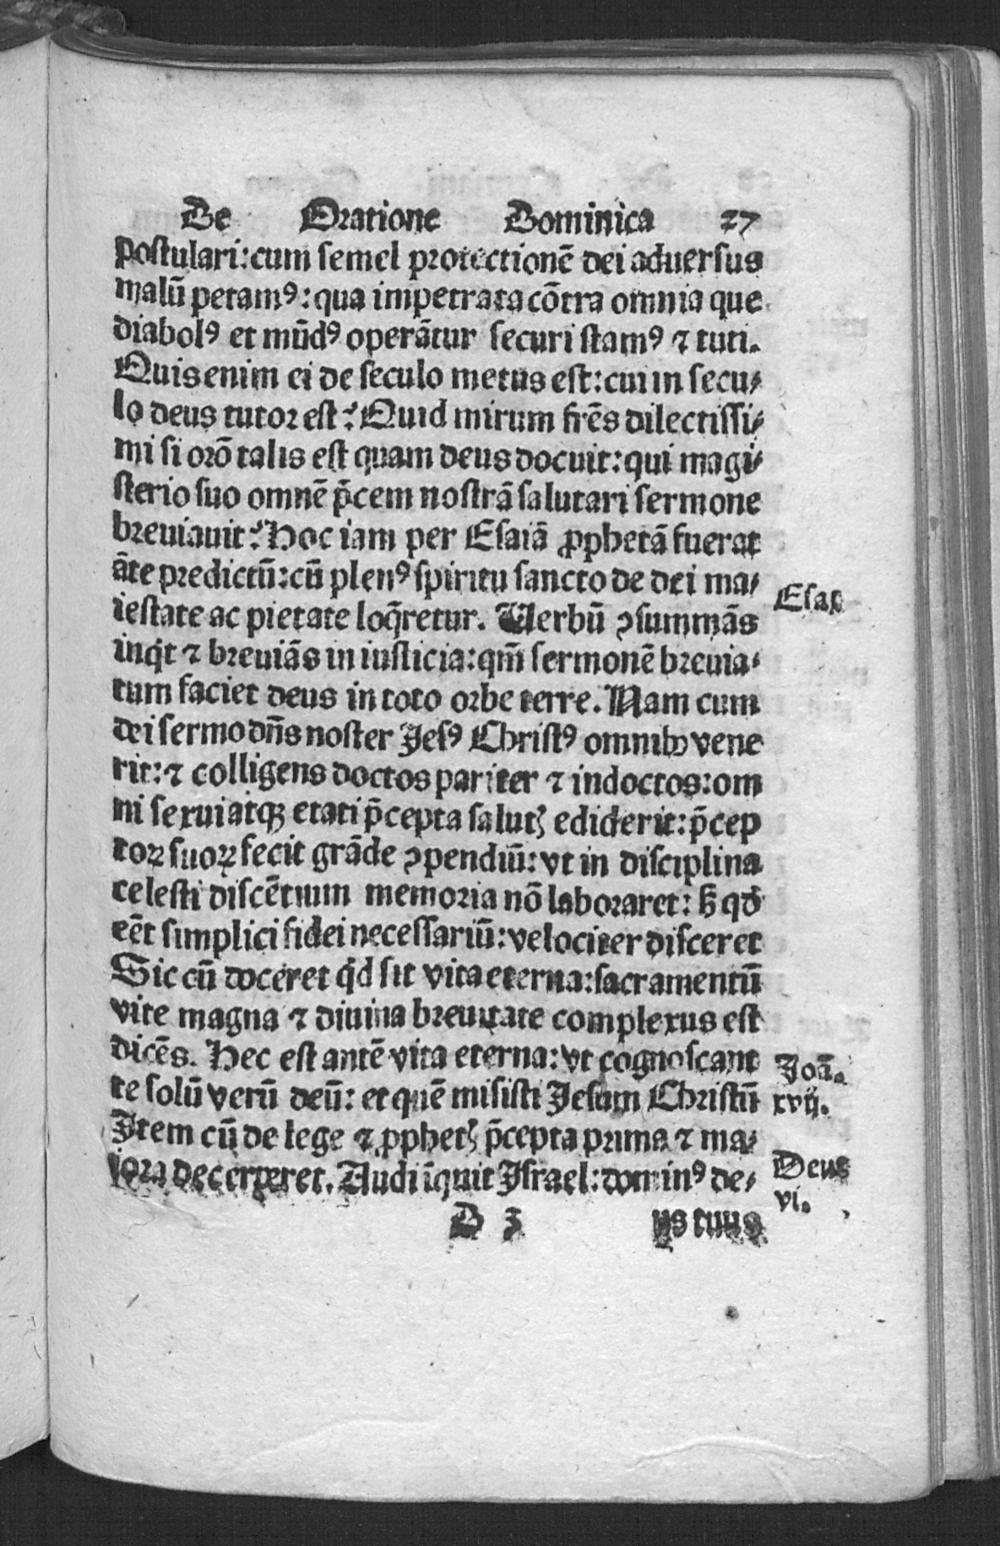 De Oratione Dominica 27
postulari: cum semel protectionē dei aduersus
malū petamꝰ: qua impetrata cōtra omnia que
diabolꝰ et mūdꝰ operātur securi stamꝰ ⁊ tuti.
Quis enim ei de seculo metus est: cui in secu⸗
lo deus tutor est? Quid mirum fr̄es dilectissi⸗
mi si orō talis est quam deus docuit: qui magi⸗
sterio suo omnē p̄cem nostrā salutari sermone
breuiauit? Hoc iam per Esaiā ꝓphetā fuerat
āte predictū: cū plenꝰ spiritu sancto de dei ma⸗
iestate ac pietate loq̄retur. Uerbū ꝯsummās
inqͥt ⁊ breuiās in iusticia: qm̄ sermonē breuia⸗
tum faciet deus in toto orbe terre. Nam cum
dei sermo dn̄s noster Jesꝰ Christꝰ omnibꝰ vene
rit: ⁊ colligens doctos pariter ⁊ indoctos: om
ni sexui atqꝫ etati p̄cepta salutꝭ ediderit: p̄cep
toꝝ suoꝝ fecit grāde ꝯpendiū: vt in disciplina
celesti discētium memoria nō laboraret: sꝫ qd̄
eēt simplici fidei necessariū: velociter disceret
Sic cū doceret qͥd sit vita eterna: sacramentū
vite magna ⁊ diuina breuitate complexus est
dicēs. Hec est autē vita eterna: vt cognoscant
te solū verū deū: et quē misisti Jesum Christū
Item cū de lege ⁊ ꝓphetꝭ p̄cepta prima ⁊ ma⸗
iora decerperet. Audi īquit Israel: dominꝰ de⸗
D 3 us tuus
Esaꝭ
Joā.
xvij.
Deus
vi.